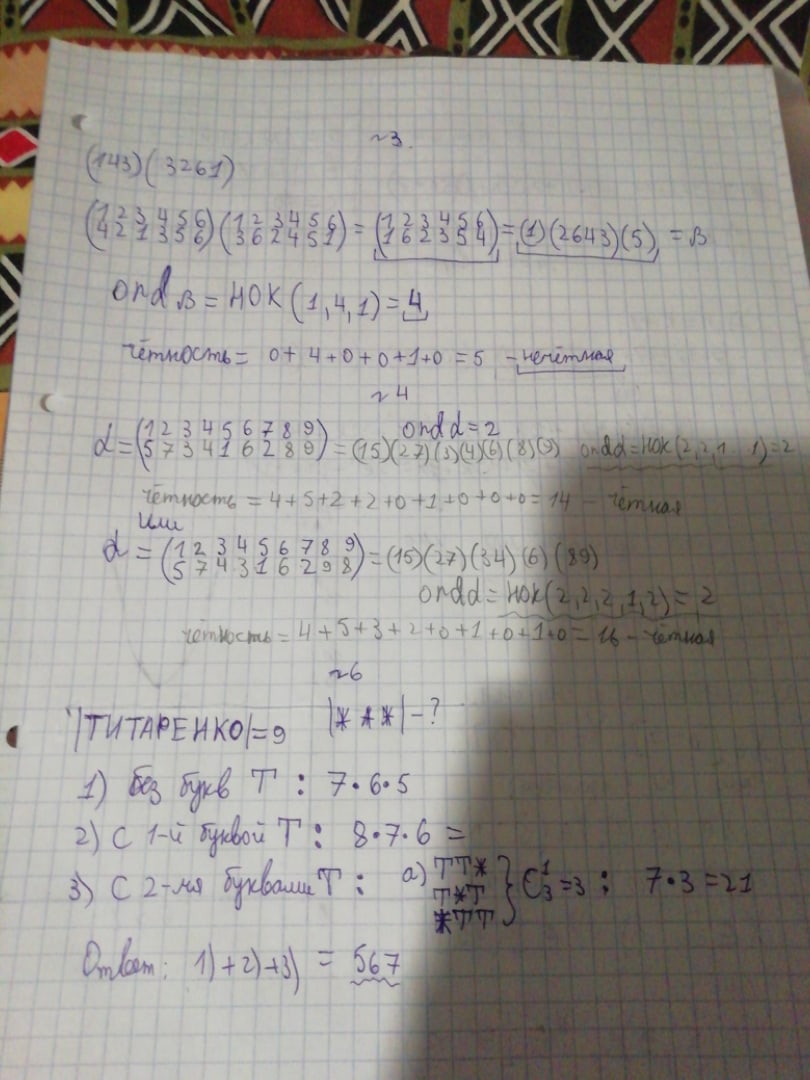 ~3.
(143)(3261)
(1 2 3 4 5 6 / 4 2 1 3 5 6)(1 2 3 4 5 6 / 3 6 2 4 5 1) = (1 2 3 4 5 6 / 1 6 2 3 5 4) = (1)(2643)(5) = β
ord β = НОК (1,4,1) = 4
чётность = 0+4+0+0+1+0 = 5 - нечётная
~4
ord α = 2
α = (1 2 3 4 5 6 7 8 9 / 5 7 3 4 1 6 2 8 9) = (15)(27)(3)(4)(6)(8)(9) ord α = НОК(2,2,1...1) = 2
чётность = 4+5+2+2+0+1+0+0+0 = 14 - чётная
или
α = (1 2 3 4 5 6 7 8 9 / 5 7 4 3 1 6 2 9 8) = (15)(27)(34)(6)(89)
ord α = НОК(2,2,2,1,2) = 2
чётность = 4+5+3+2+0+1+0+1+0 = 16 - чётная
~6
|ТИТАРЕНКО| = 9 |* * *| - ?
1) без букв Т : 7·6·5
2) С 1-й буквой Т : 8·7·6 =
3) С 2-мя буквами Т : а) ТТ* Т*Т *ТТ } C₃¹ = 3 : 7·3 = 21
Ответ: 1)+2)+3) = 567